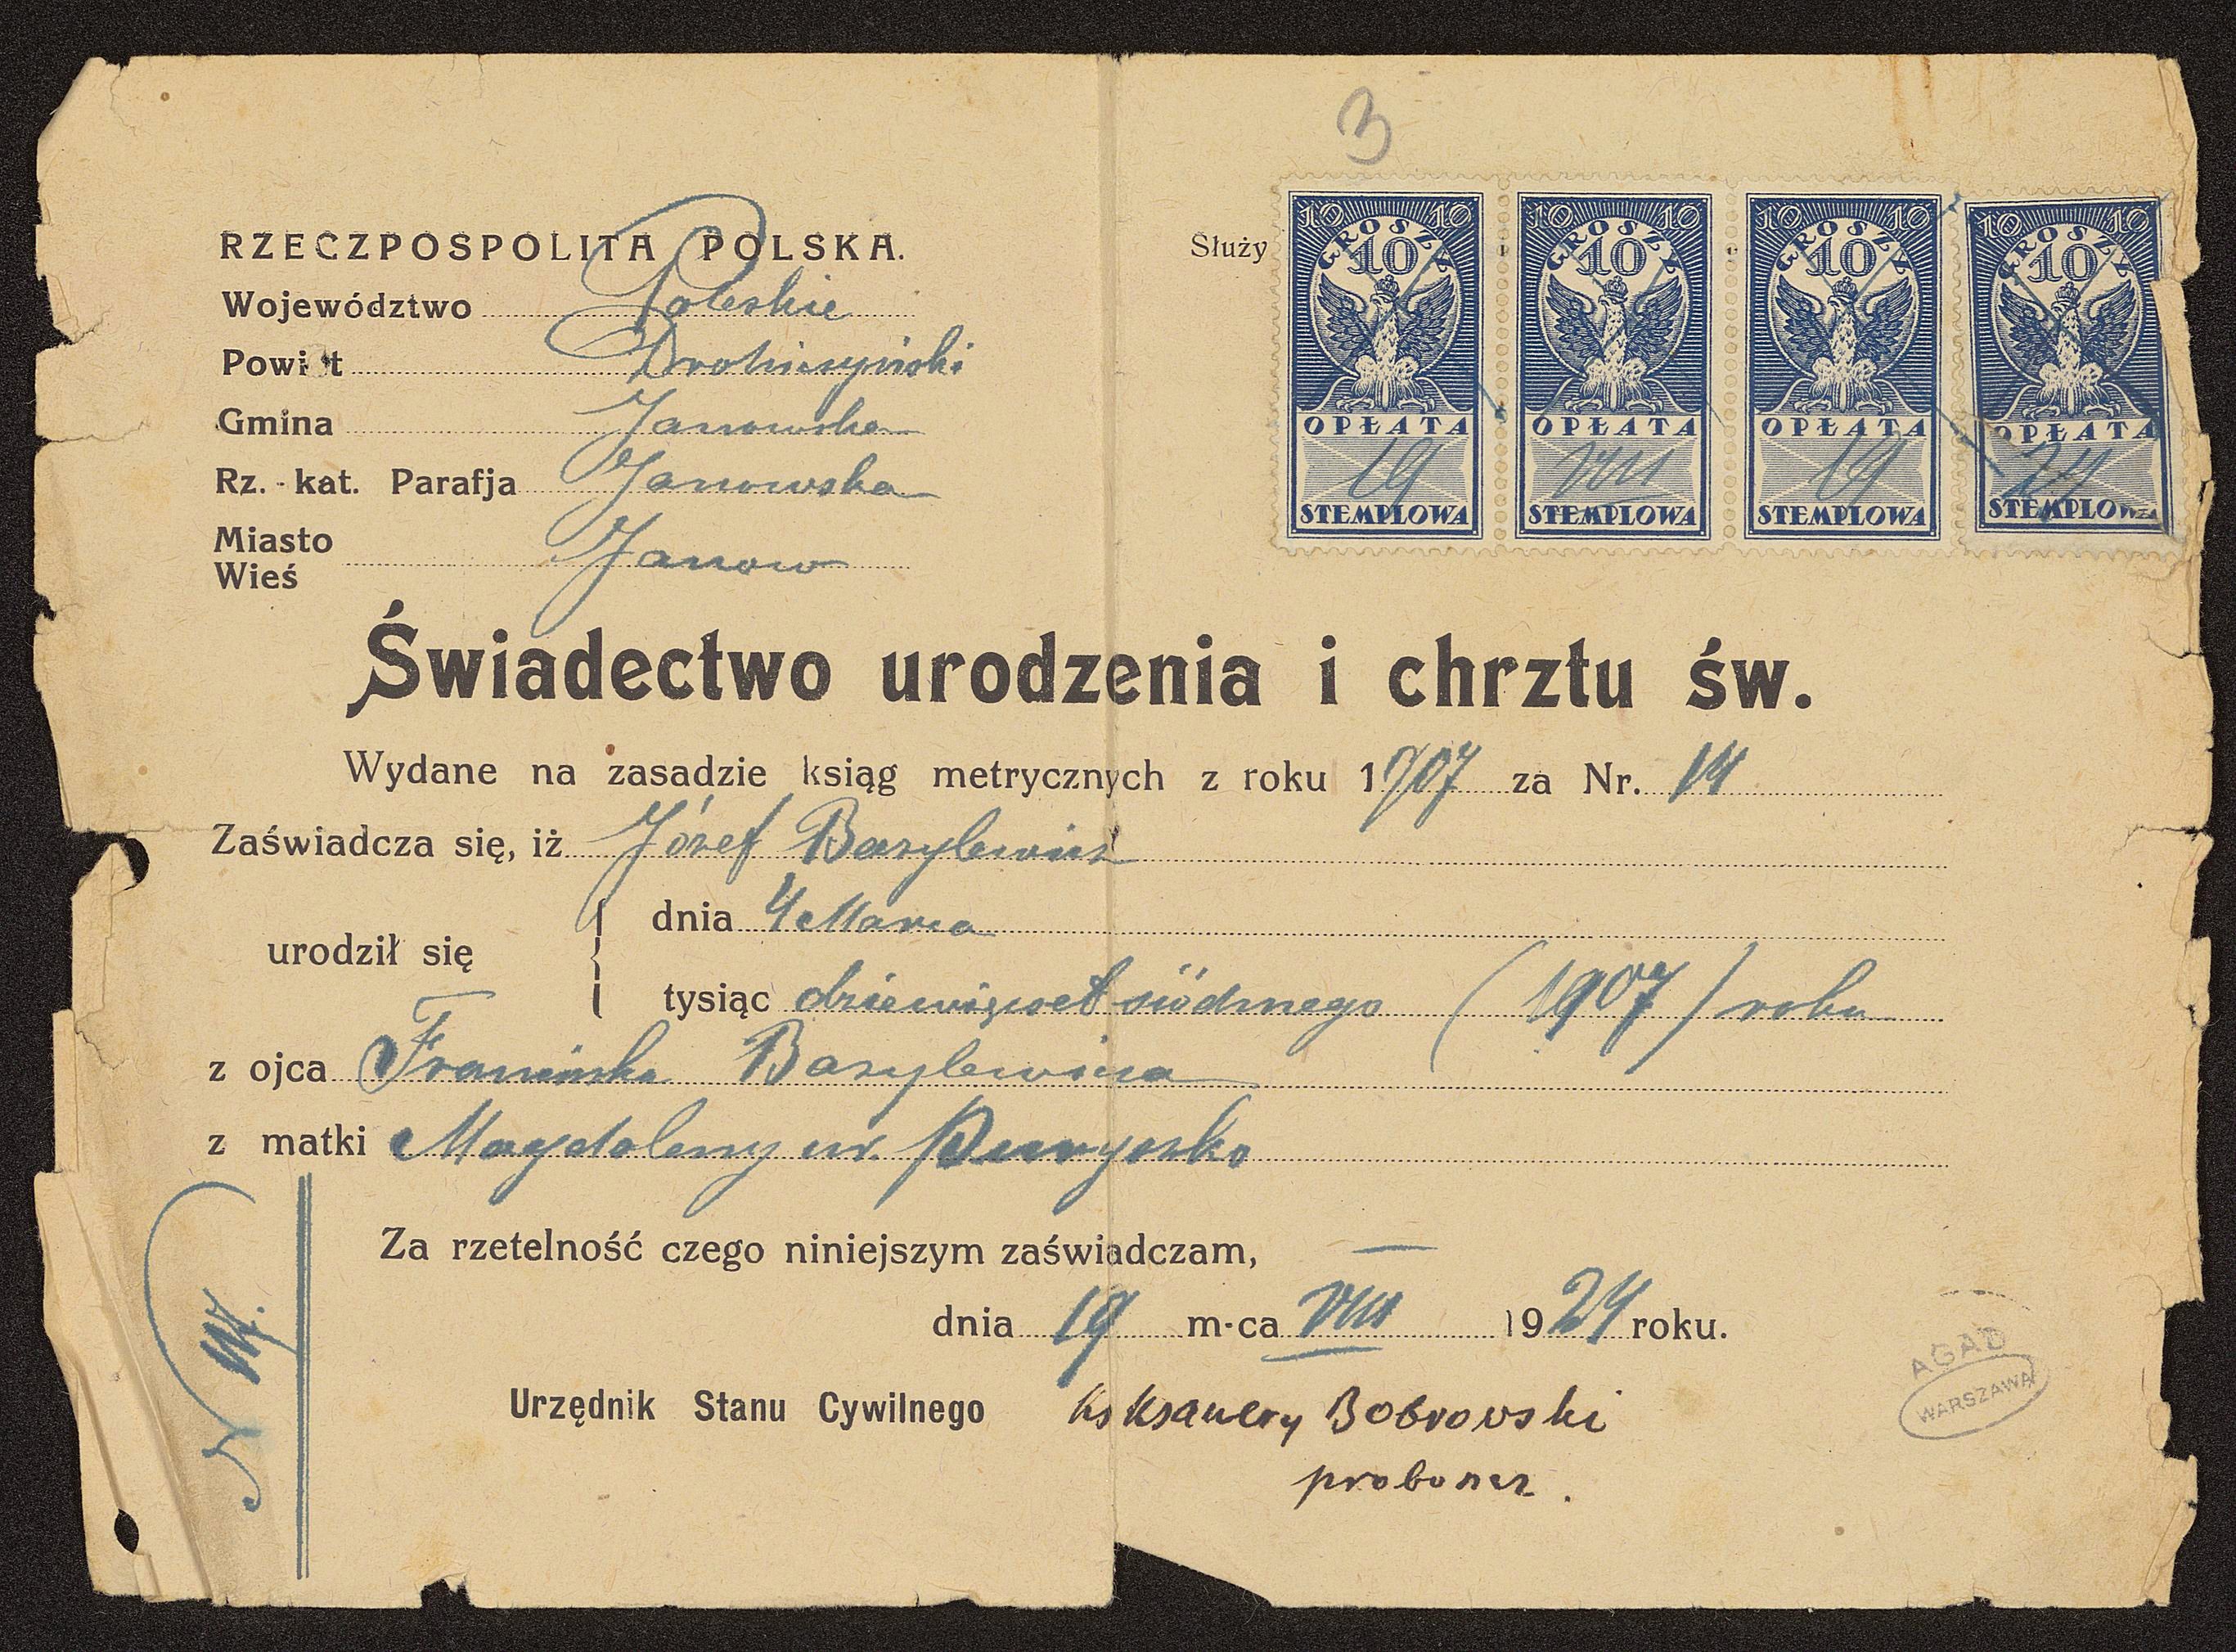 3
RZECZPOSPOLITA POLSKA.
Służy
Województwo Poleskie
Powi t Drohiczyński
Gmina Janowska
Rz.-kat. Parafja Janowska
Miasto
Wieś
Janow
10 10 10 10 10 10 10 10
GROSZY GROSZY GROSZY GROSZY
10 10 10 10
OPŁATA OPŁATA OPŁATA OPŁATA
19 VIII 19 24
STEMPLOWA STEMPLOWA STEMPLOWA STEMPLOWA
Świadectwo urodzenia i chrztu św.
Wydane na zasadzie ksiąg metrycznych z roku 1907 za Nr. 14
Zaświadcza się, iż Józef Bazylewicz
urodził się
dnia 4 Marca
tysiąc dziewięćset siódmego (1907) roku
z ojca Franciszka Bazylewicza
z matki Magdaleny ur.
Za rzetelność czego niniejszym zaświadczam,
dnia 19 m-ca VIII 1924 roku.
Urzędnik Stanu Cywilnego Ks Ksawery Bobrowski
proboszcz.
AGAD
WARSZAWA